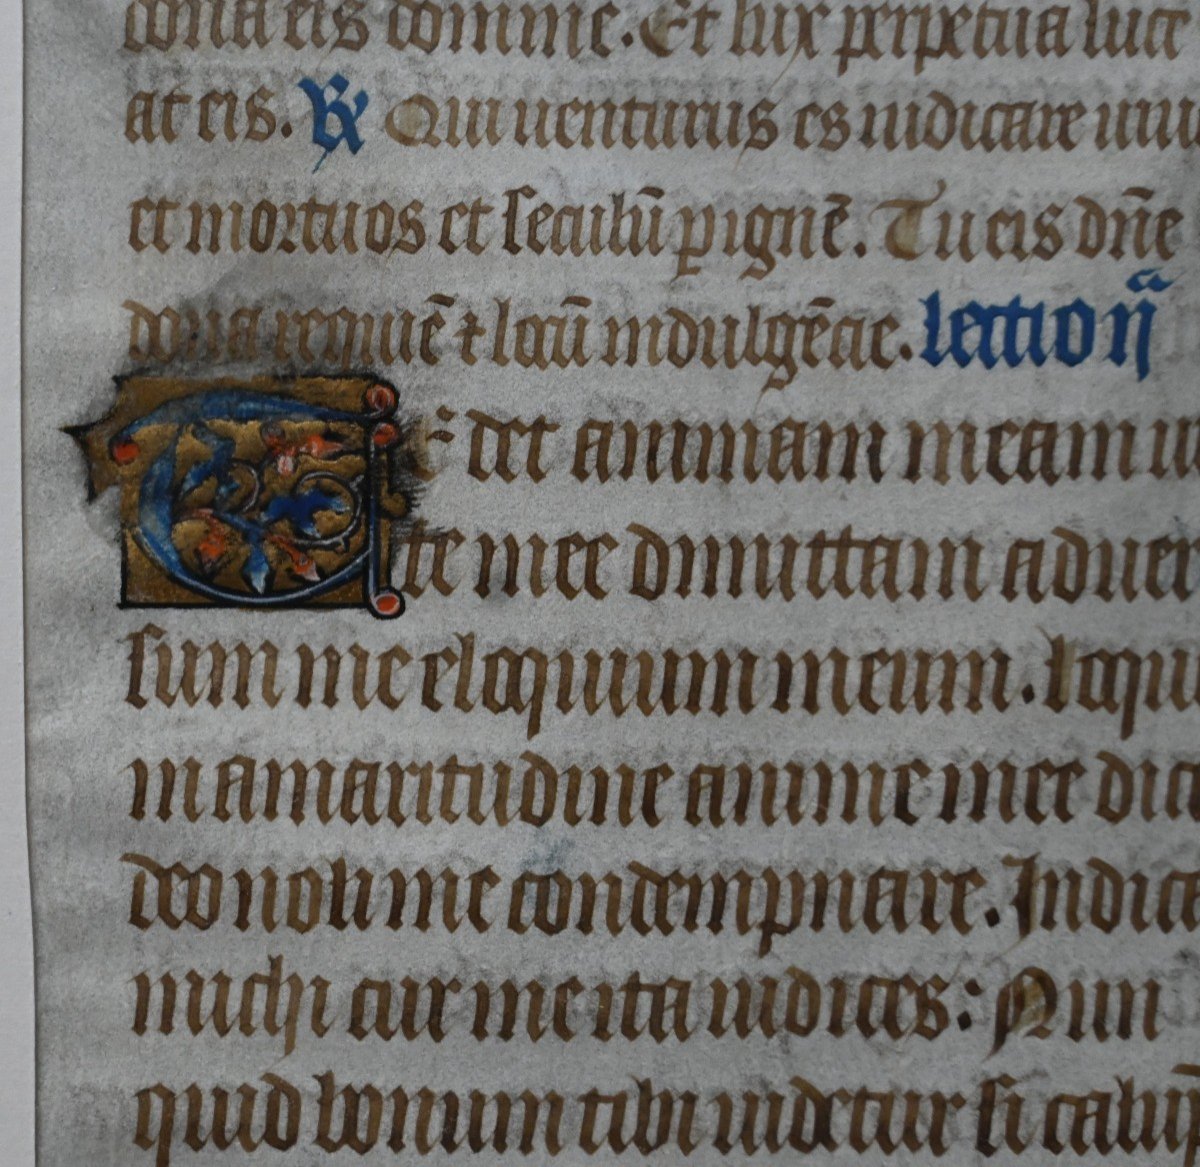 dona eis domine. Et lux perpetua luce
at eis. ℟ Qui venturus es iudicare viv
et mortuos et seculũ p ignẽ. Tu eis dñe
dona requiẽ ⁊ locũ indulgẽcie. lectio ij
T edet animam meam
te mee dimittam adver
sum me eloquium meum. loqu
in amaritudine anime mee
deo noli me condempnare. Indica
michi cur me ita iudices: Nun
quid bonum tibi videtur si